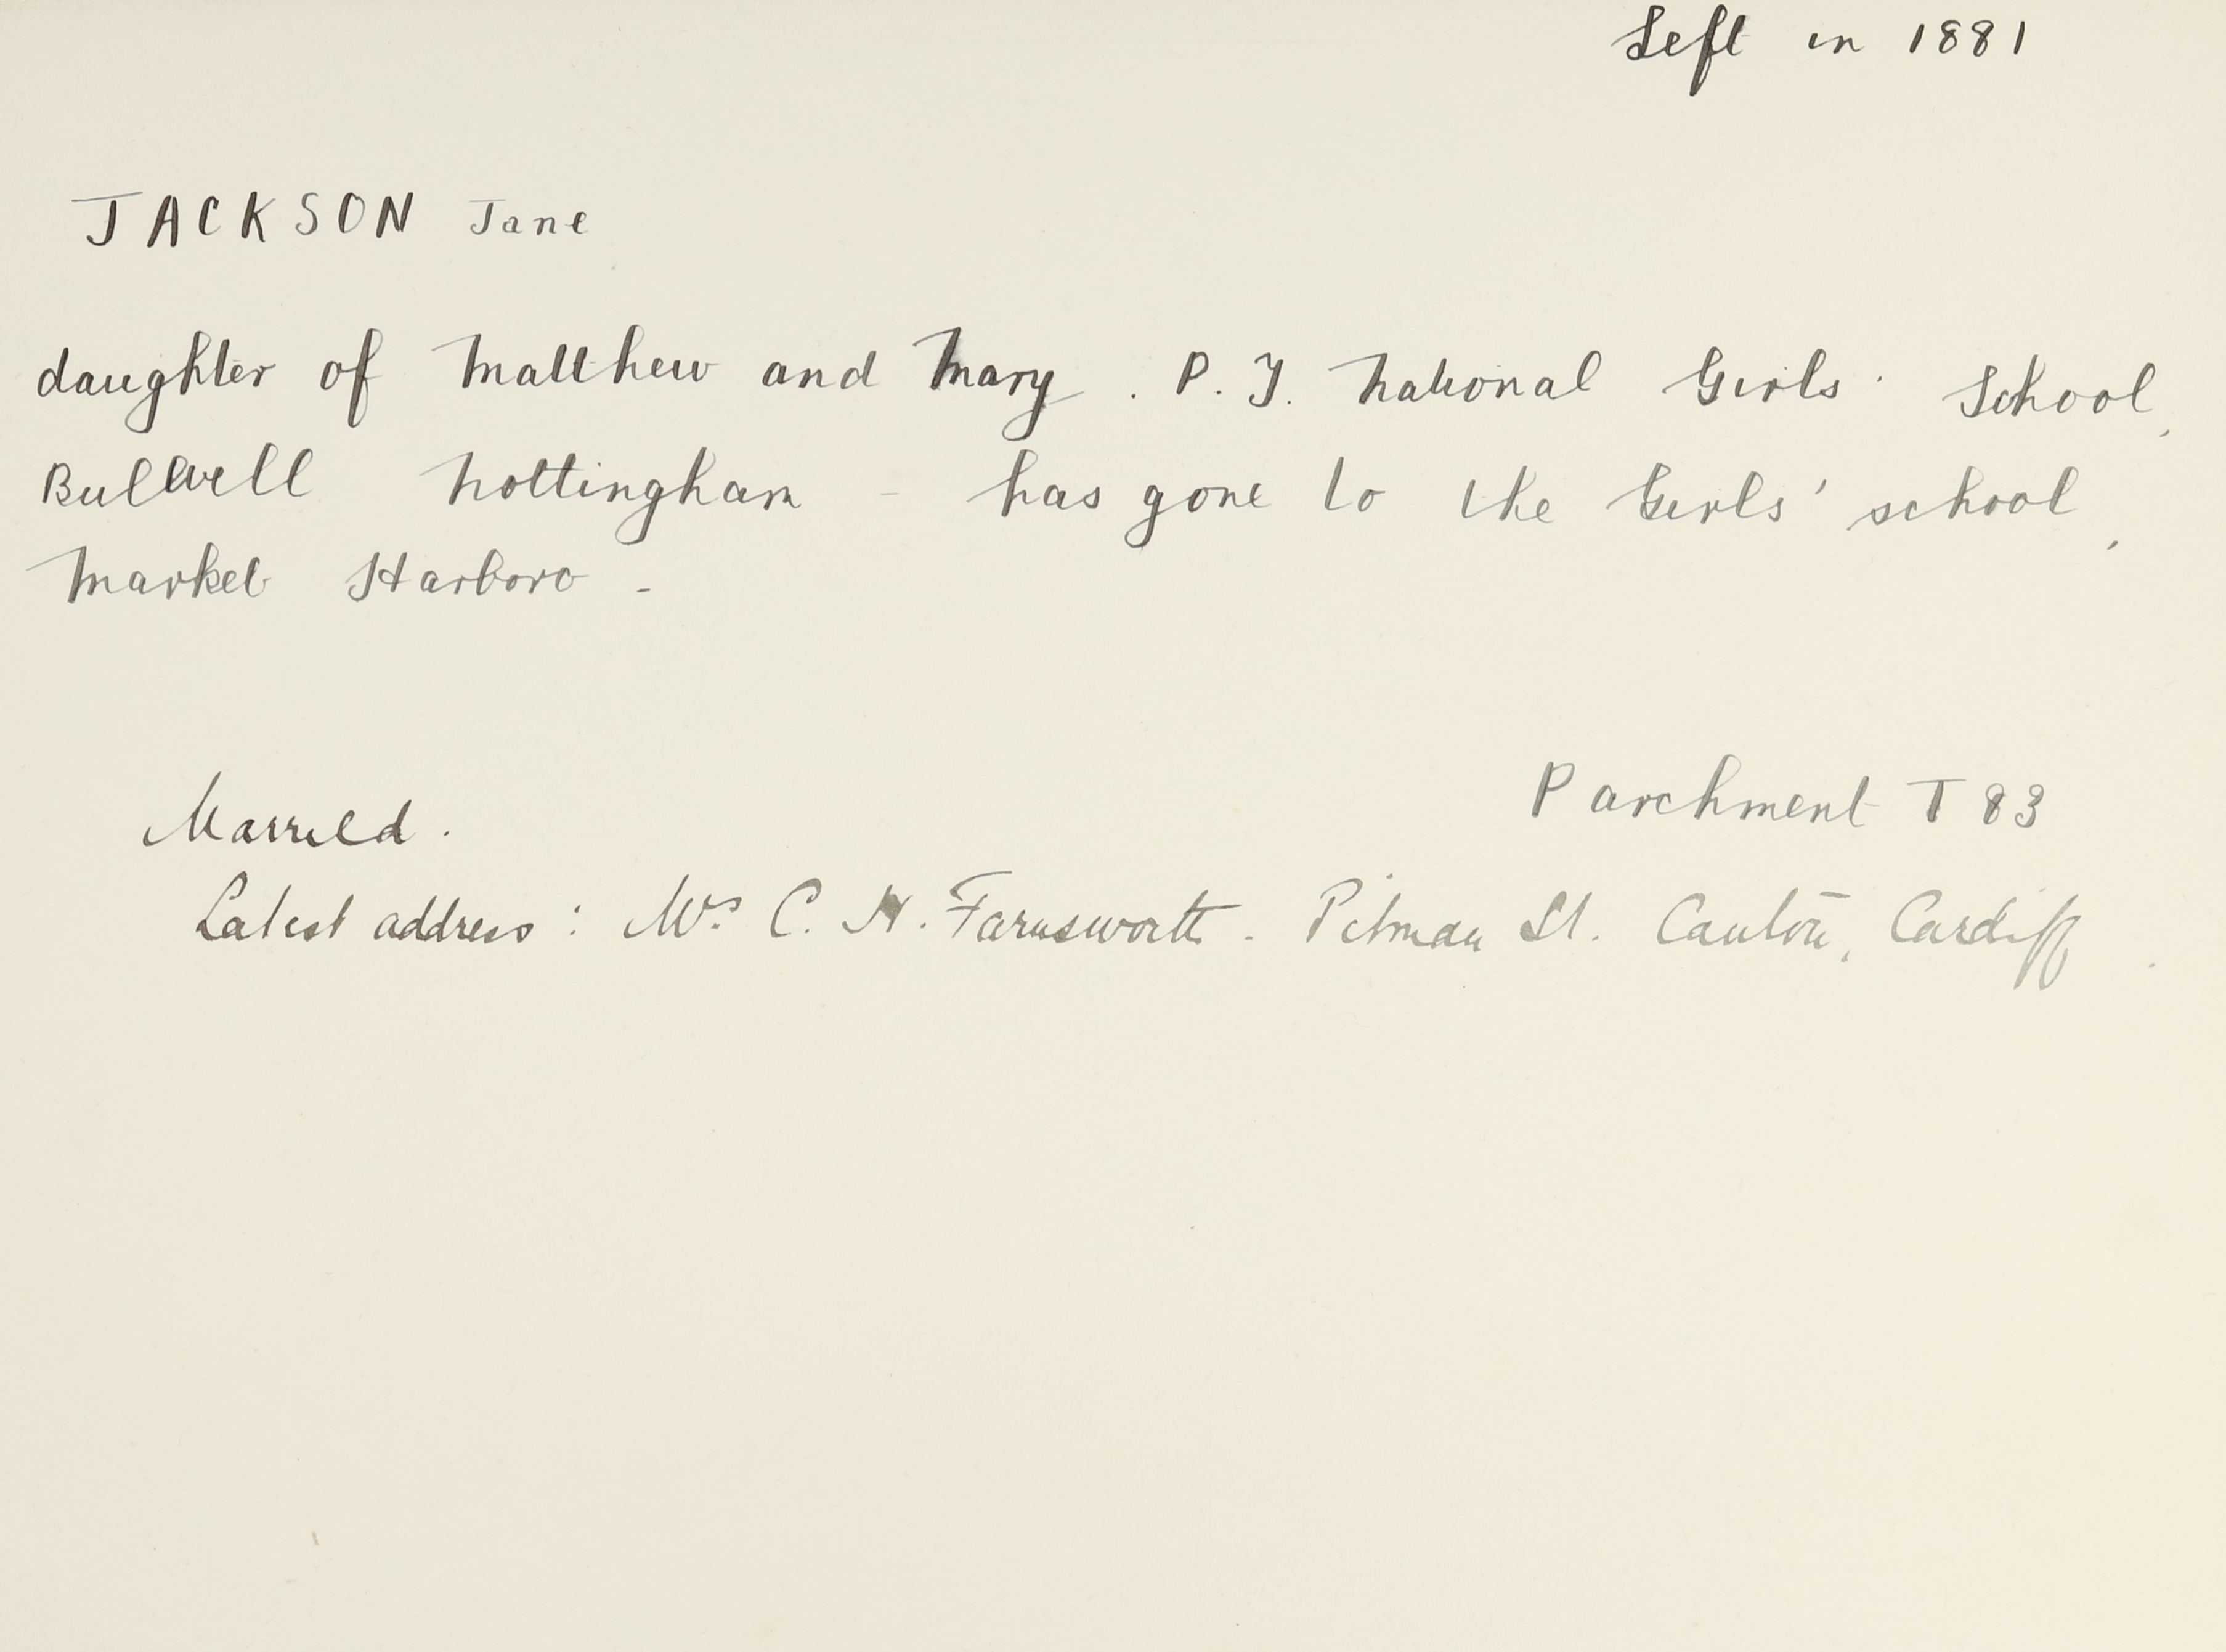 Left in 1881
JACKSON Jane
daughter of Matthew and Mary. P. T. National Girls' School,
Bulwell Nottingham - has gone to the Girls' school,
Market Harboro -
Parchment T 83
Married.
Latest address: Mrs C. H. Farnsworth. Pitman St. Canton, Cardiff.